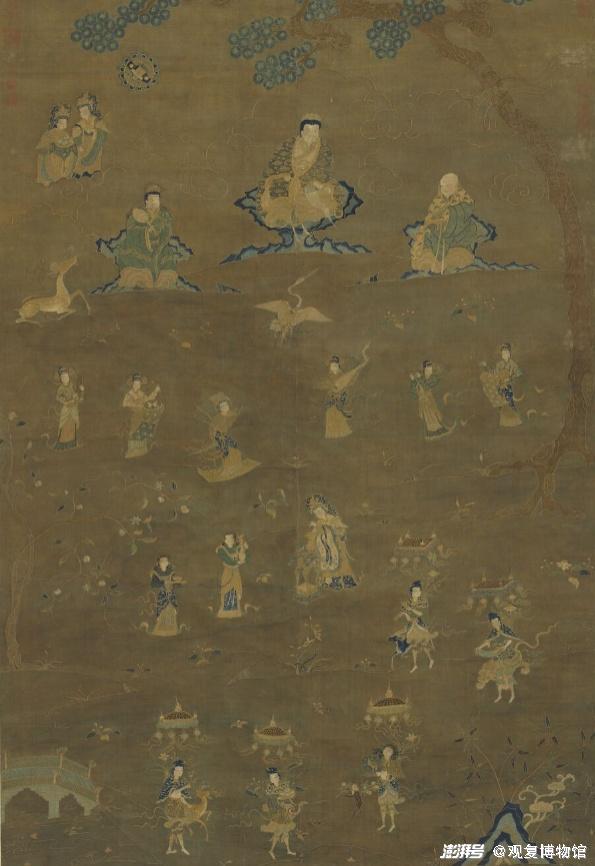 澎湃号 @观复博物馆